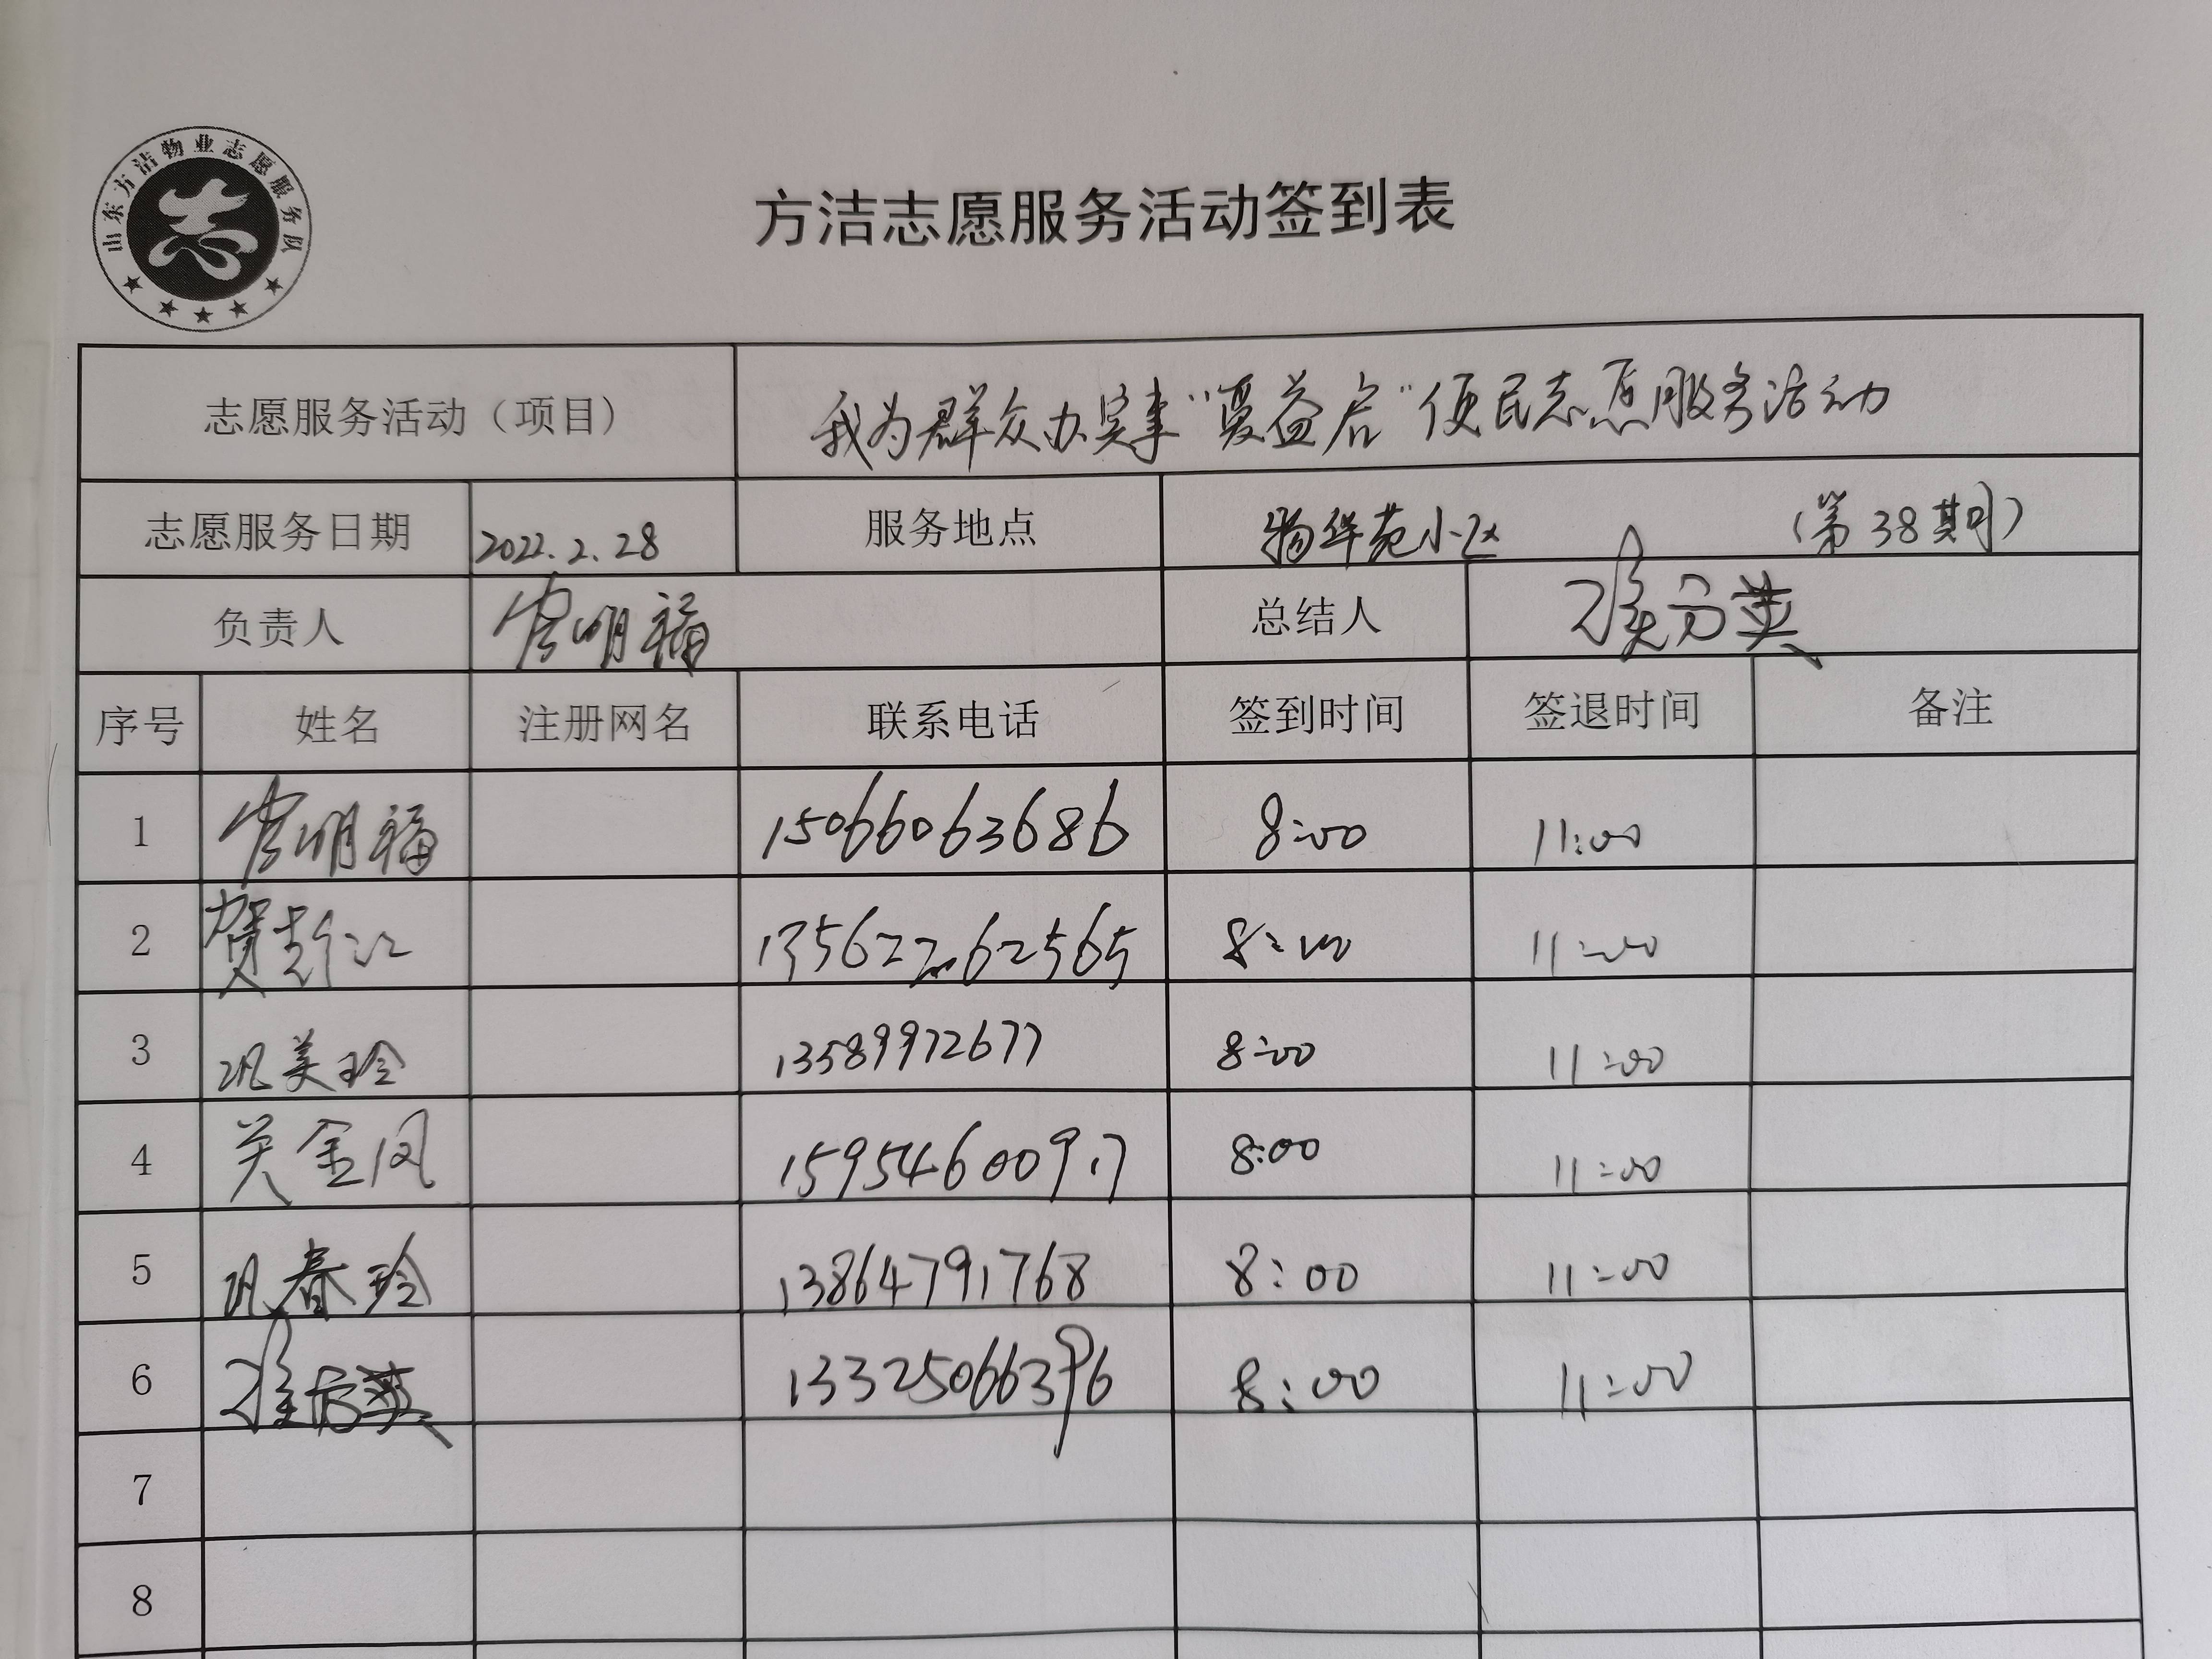 山东方洁物业志愿服务队
志
方洁志愿服务活动签到表
志愿服务活动（项目） 我为群众办实事“爱益启”便民志愿服务活动
志愿服务日期 2022.2.28 服务地点 物华苑小区 （第38期）
负责人 明福 总结人 英
序号 姓名 注册网名 联系电话 签到时间 签退时间 备注
1 明福 15066063686 8:00 11:00
2 贺彭江 8:00 11:00
3 巩美玲 13589972677 8:00 11:00
4 关金凤 15954600917 8:00 11:00
5 巩春玲 13864791768 8:00 11:00
6 英 13325066396 8:00 11:00
7
8